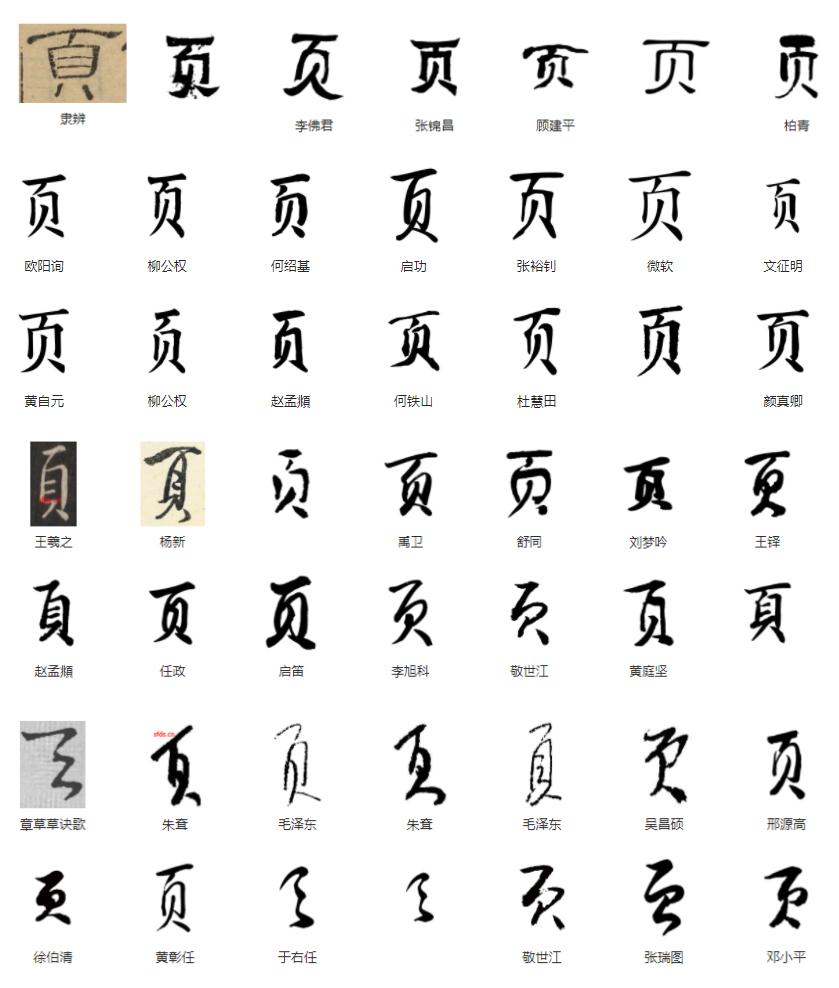 頁 页 页 页 页 页 页
隶辨 李佛君 张锦昌 顾建平 柏青
页 页 页 页 页 页 页
欧阳询 柳公权 何绍基 启功 张裕钊 微软 文征明
页 页 页 页 页 页 页
黄自元 柳公权 赵孟頫 何铁山 杜慧田 颜真卿
頁 頁 页 页 页 页 页
王羲之 杨新 禹卫 舒同 刘梦吟 王铎
頁 页 页 页 页 頁 頁
赵孟頫 任政 启笛 李旭科 敬世江 黄庭坚
sfds.cn
页 頁 页 頁 頁 页 页
章草草诀歌 朱耷 毛泽东 朱耷 毛泽东 吴昌硕 邢源高
页 页 页 页 页 页 页
徐伯清 黄彰任 于右任 敬世江 张瑞图 邓小平